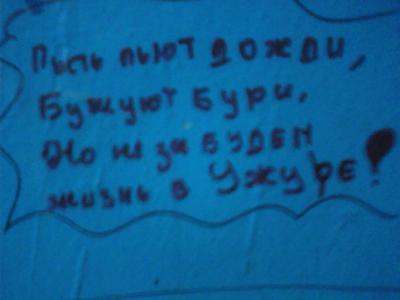 Пусть льют дожди,
Бушуют бури,
Но не забудем
жизнь в Ужуре!